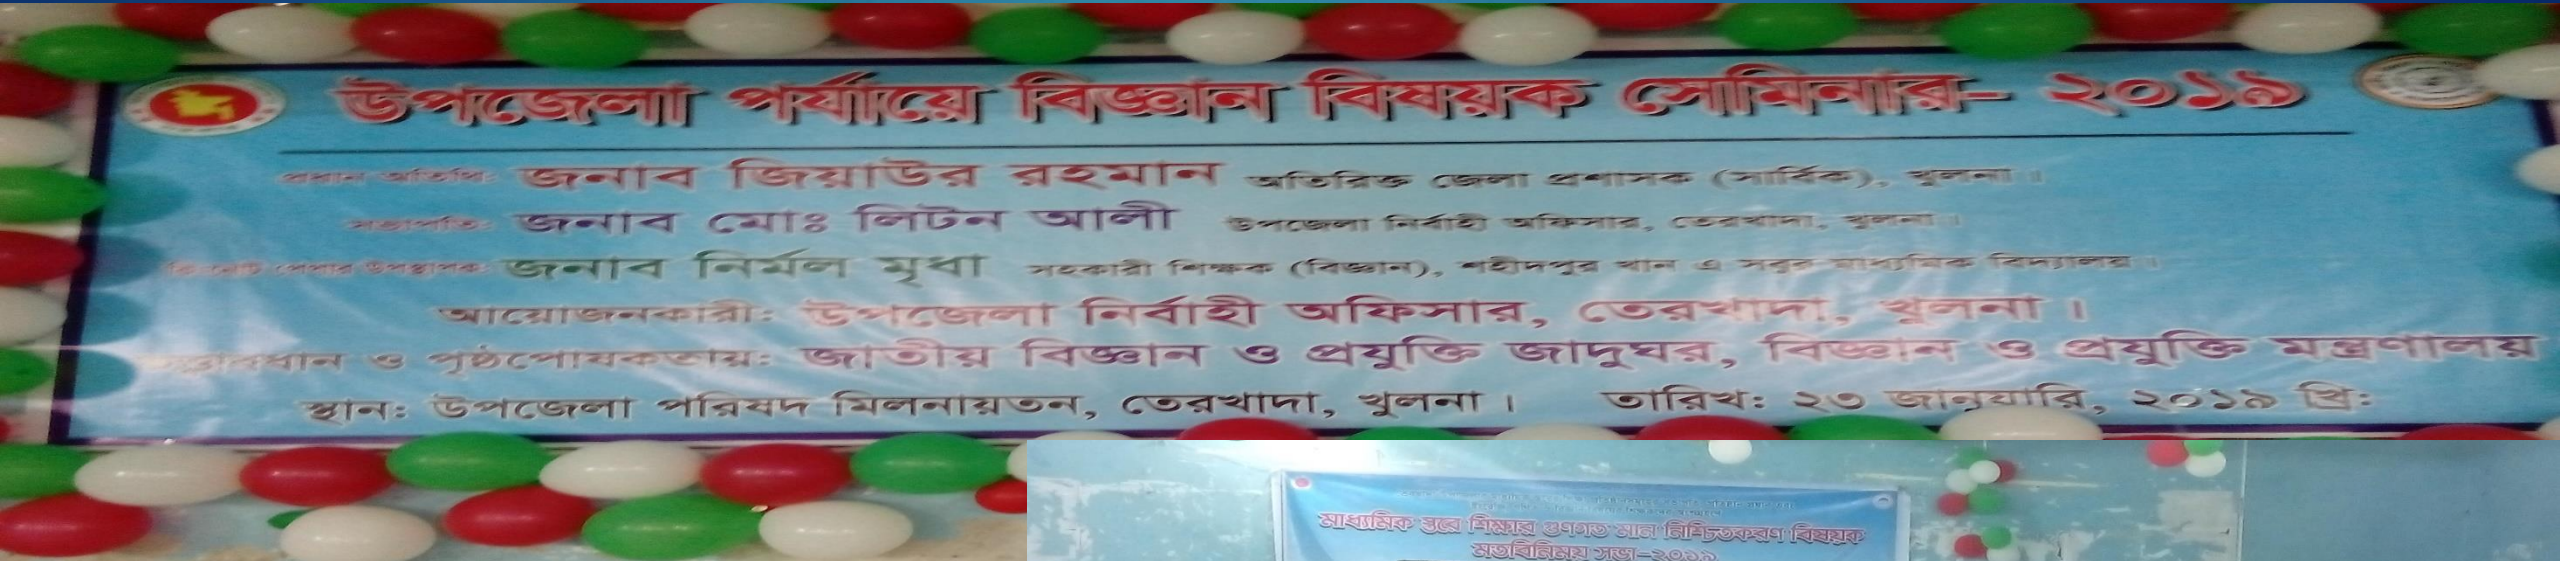 উপজেলা পর্যায়ে বিজ্ঞান বিষয়ক সেমিনার- ২০১৯
প্রধান অতিথি: জনাব জিয়াউর রহমান অতিরিক্ত জেলা প্রশাসক (সার্বিক), খুলনা ।
সভাপতি: জনাব মোঃ লিটন আলী উপজেলা নির্বাহী অফিসার, তেরখাদা, খুলনা ।
জনাব নির্মল মৃধা সহকারী শিক্ষক (বিজ্ঞান), শহীদপুর খান এ সবুর মাধ্যমিক বিদ্যালয় ।
আয়োজনকারী: উপজেলা নির্বাহী অফিসার, তেরখাদা, খুলনা ।
ও পৃষ্ঠপোষকতায়: জাতীয় বিজ্ঞান ও প্রযুক্তি জাদুঘর, বিজ্ঞান ও প্রযুক্তি মন্ত্রণালয়
স্থান: উপজেলা পরিষদ মিলনায়তন, তেরখাদা, খুলনা । তারিখ: ২৩ জানুয়ারি, ২০১৯ খ্রি:
মাধ্যমিক স্তরে শিক্ষার গুণগত মান নিশ্চিতকরণ বিষয়ক
মতবিনিময় সভা-২০১৯